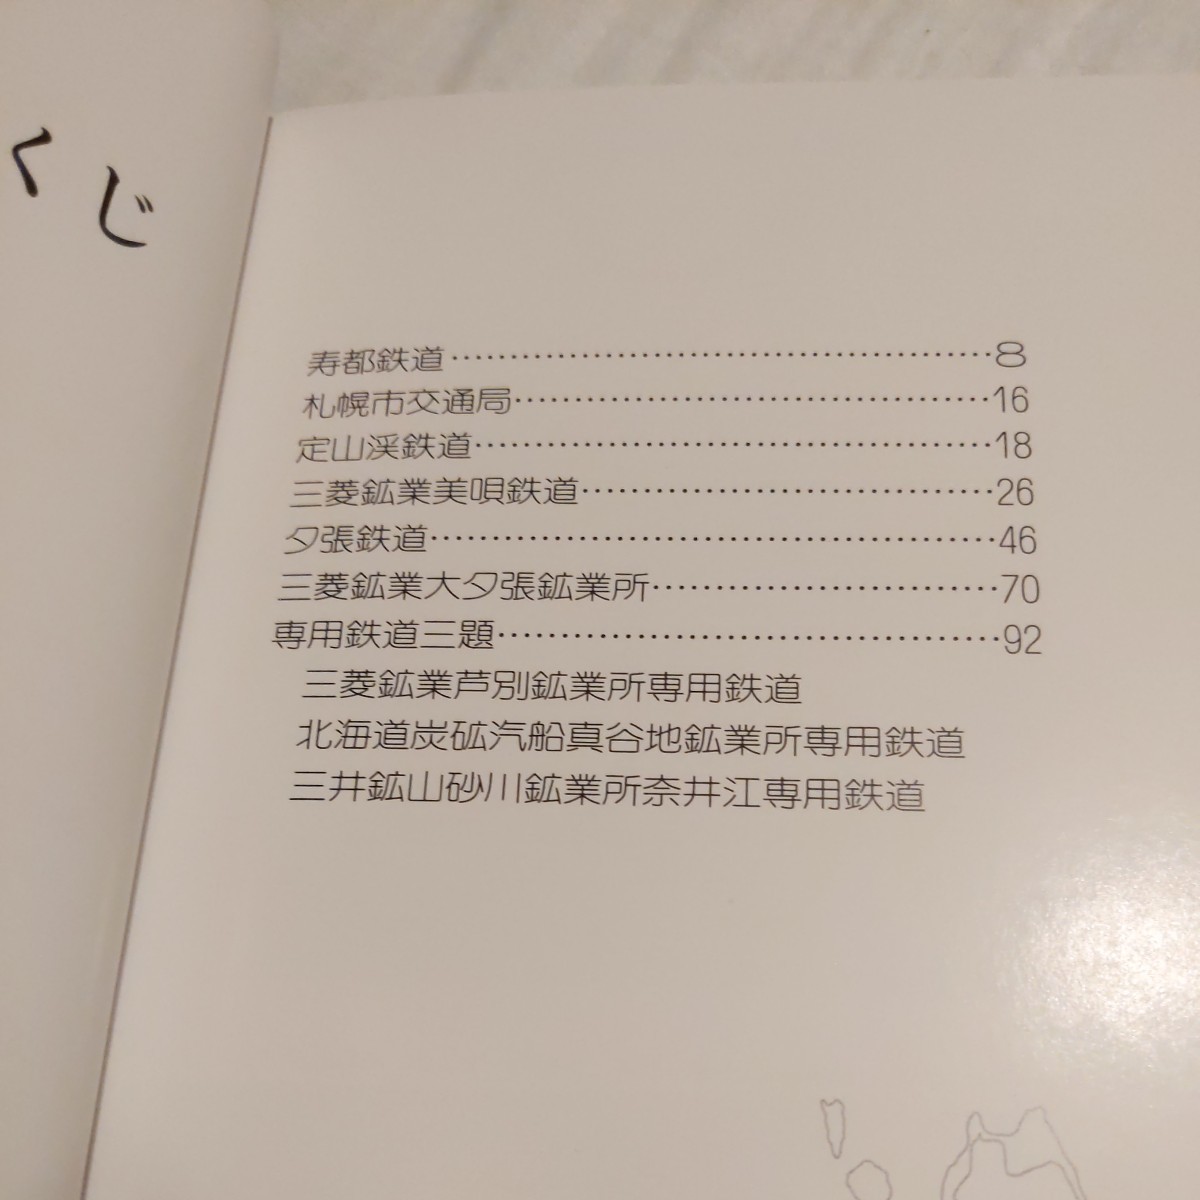 くじ
寿都鉄道……………………………………………8
札幌市交通局………………………………………16
定山渓鉄道…………………………………………18
三菱鉱業美唄鉄道…………………………………26
夕張鉄道……………………………………………46
三菱鉱業大夕張鉱業所……………………………70
専用鉄道三題………………………………………92
三菱鉱業芦別鉱業所専用鉄道
北海道炭砿汽船真谷地鉱業所専用鉄道
三井鉱山砂川鉱業所奈井江専用鉄道